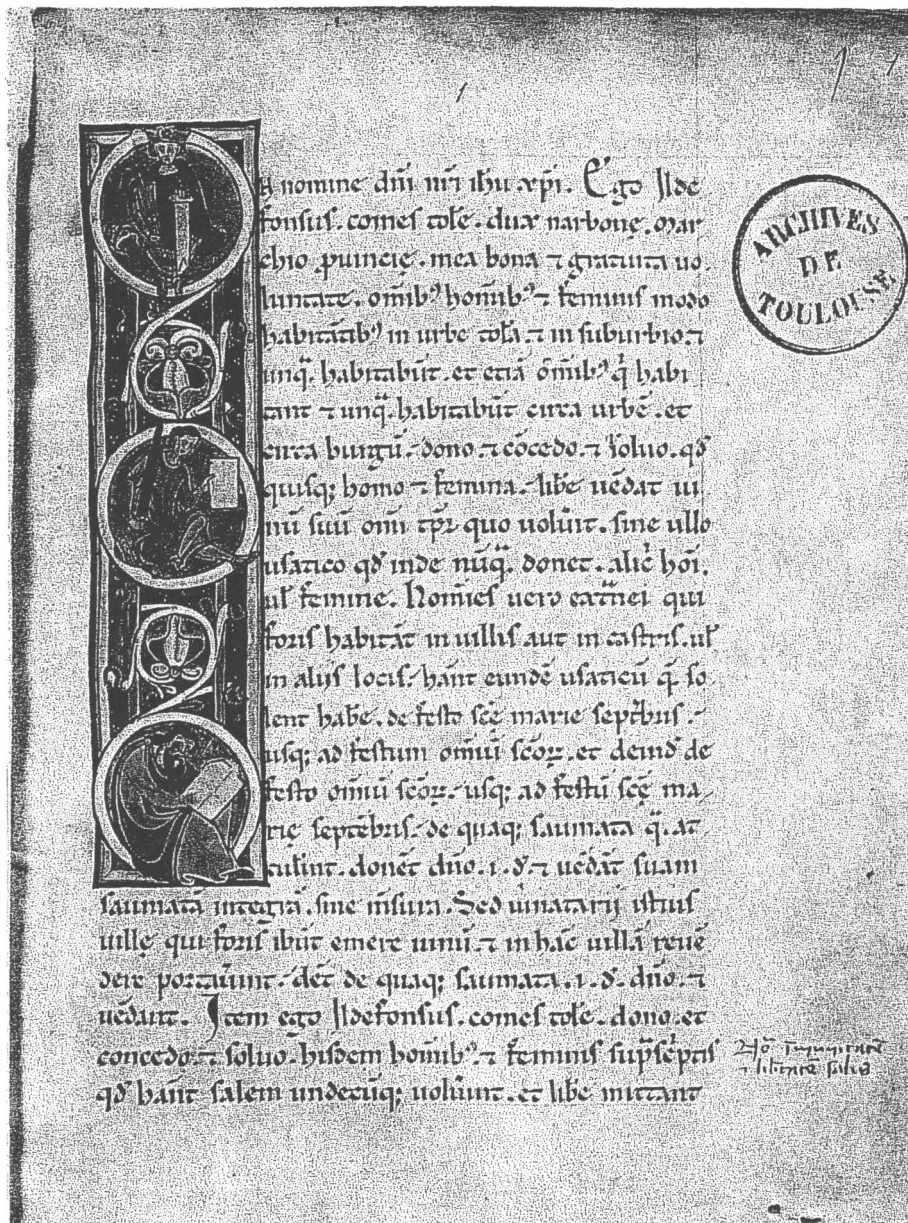 N nomine dñi nr̃i ihu xp̃i. Ego Ilde
fonsus. comes tolẽ. dux narbonę. mar
chio ꝓuincię. mea bona ⁊ gratuita uo
luntate. om̃ib⁹ hom̃ib⁹ ⁊ feminis modo
habitãtib⁹ in urbe tolã. ⁊ in suburbio ⁊
unq̃. habitabũt. et etiã om̃ib⁹ q̃ habi
tant ⁊ unq̃. habitabũt circa urbẽ. et
circa burgũ. dono ⁊ cõcedo. ⁊ soluo. qđ
quisq; homo ⁊ femina. libe uẽdat ui
nũ suũ omi tp̃r quo uolũit. sine ullo
usatico qđ inde nũq̃. donet. alic̃ hoĩ.
ul̃ femine. Homĩes uero eatñei qui
foris habitãt in uillis aut in castris. ul̃
in alijs locis. hãnt eundẽ usaticũ q̃ so
lent habẽ. de festo sc̃ę marie septẽbris.
usq; ad festum om̃iũ sc̃oꝝ. et deind̃ de
festo om̃iũ sc̃oꝝ. usq; ad festũ sc̃ę ma
rię septẽbris. de quaq; saumata q̃. at
tulĩnt. donẽt dño .i. đ. ⁊ uẽdãt suam
saumatã integrã. sine mẽsura. Sed uinatarij istius
uillę qui foris ibũt emere uinũ. ⁊ in hãc uillã reuẽ
dere portauũint. dẽt de quaq; saumata .i. đ. dño. ⁊
uẽdant. Item ego Ildefonsus. comes tolẽ. dono. et
concedo. ⁊ soluo. hisdem hom̃ib⁹. ⁊ feminis sup̃sc̃ptis
qđ hãnt salem undecũq; uolũint. et libe mittant
ARCHIVES
DE
TOULOUSE
⁊ libtatẽ salis